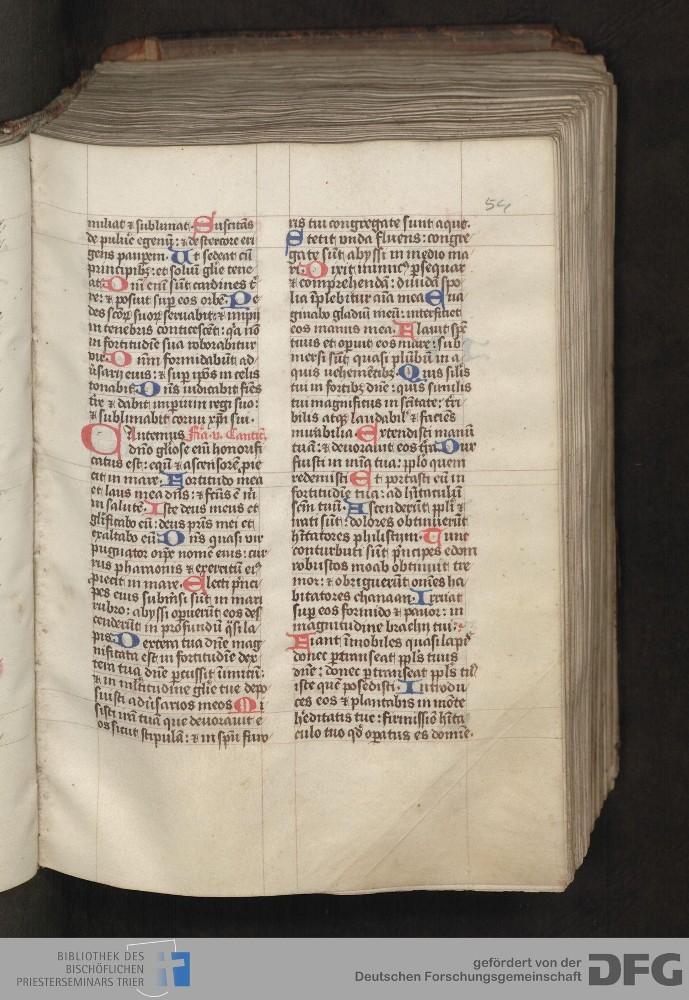 54
miliat ⁊ subleuat. Suscitās
de puluē egenū: ⁊ de stercore eri
gens paupem. Ut sedeat cū
principibꝫ: et soliū glīe tene
at. Dñi enī sūt cardines t̄
re: ⁊ posuit sup eos orbē. Pe
des scōꝝ suoꝝ seruabit: ⁊ impii
in tenebris conticescēt: qa nō
in fortitudīe sua roborabitur
vir. Dnm formidabūt ad
u̓sarii eius: ⁊ sup ipōs in celis
tonabit. Dñs iudicabit fiēs
tre ⁊ dabit imperium regi suo:
⁊ sublimabit cornu xp̄i sui.
CAntemus Fīa .v. Cantic̄.
dn̄o gl̓iose enī honorifi
catus est: equū ⁊ ascensorē pie
cit in mare. Fortitudo mea
et laus mea dñs: ⁊ fcūs ē m̄
in salutē. Iste deus meus et
glīficabo eū: deus prīs mei et
exaltabo eū. Dñs quasi vir
pugnator oīps nomē eius: cur
rus pharaonis ⁊ exercitū ei᷒
piecit in mare. Electi pn̄ci
pes eius subm̄si sūt in mari
rubro: abyssi opuerūt eos des
cenderūt in profundū q̄si la
pis. Dextera tua dn̄e mag
nificata est in fortitudīe dex
tera tua dn̄e pcussit inimicū:
⁊ in multitudine glīe tue depo
suisti adu̓sarios meos. Mi
sisti irā tuā que deuorauit e
os sicut stipulā: ⁊ in spū furo
ris tui congregate sunt aque.
Stetit vnda fluens: congre
gate sūt abyssi in medio ma
ri. Dixit inimic᷒ psequar
⁊ comprehendā: diuidā spo
lia īplebitur aīa mea. Eua
ginabo gladiū meū: interficiet
eos manus mea. Flauit spc̄
tuus et opuit eos mare: sub
mersi sūt quasi plūbū in a
quis vehemētibꝫ. Quis silis
tui in fortibꝫ dn̄e: quis similis
tui magnificus in scītate: t̄ri
bilis atqꝫ laudabil᷒ ⁊ faciēs
mirabilia. Extendisti manū
tuā: ⁊ deuorauit eos t̄ra. Dux
fuisti in mīa tua: pplo quem
redemisti. Et portasti eū in
fortitudīe tua: ad hītaculū
scm̄ tuū. Ascenderūt ppli ⁊
irati sūt: dolores obtinuerūt
hītatores philistiim. Tunc
conturbati sūt pn̄cipes edom
robustos moab obtinuit tre
mor: ⁊ obriguerūt omēs ha
bitatores chanaan. Irruat
sup eos formido ⁊ pauor: in
magnitudine brachii tui:
Fiant īmobiles quasi lapis
donec ptranseat ppls tuus
dn̄e: donec ptranseat ppls tu᷒
iste quē posedisti. Introdu
ces eos ⁊ plantabis in mōte
heditatis tue: firmissiō hīta
culo tuo qd̄ opatus es domie.
BIBLIOTHEK DES
BISCHÖFLICHEN
PRIESTERSEMINARS TRIER
gefördert von der
Deutschen Forschungsgemeinschaft
DFG